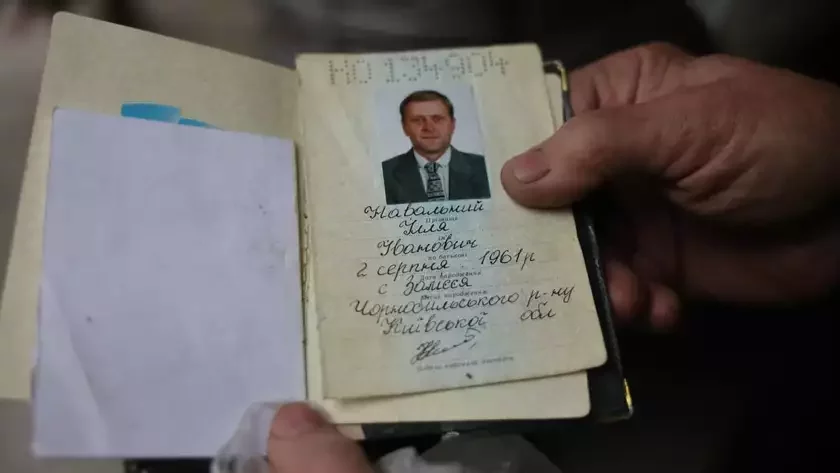 НО 134904
Навальний
Прізвище
Ілля
Іванович
по батькові
2 серпня 1961 р
Дата народження
с Залісся
Місце народження
Чорнобильського р-ну
Київської обл